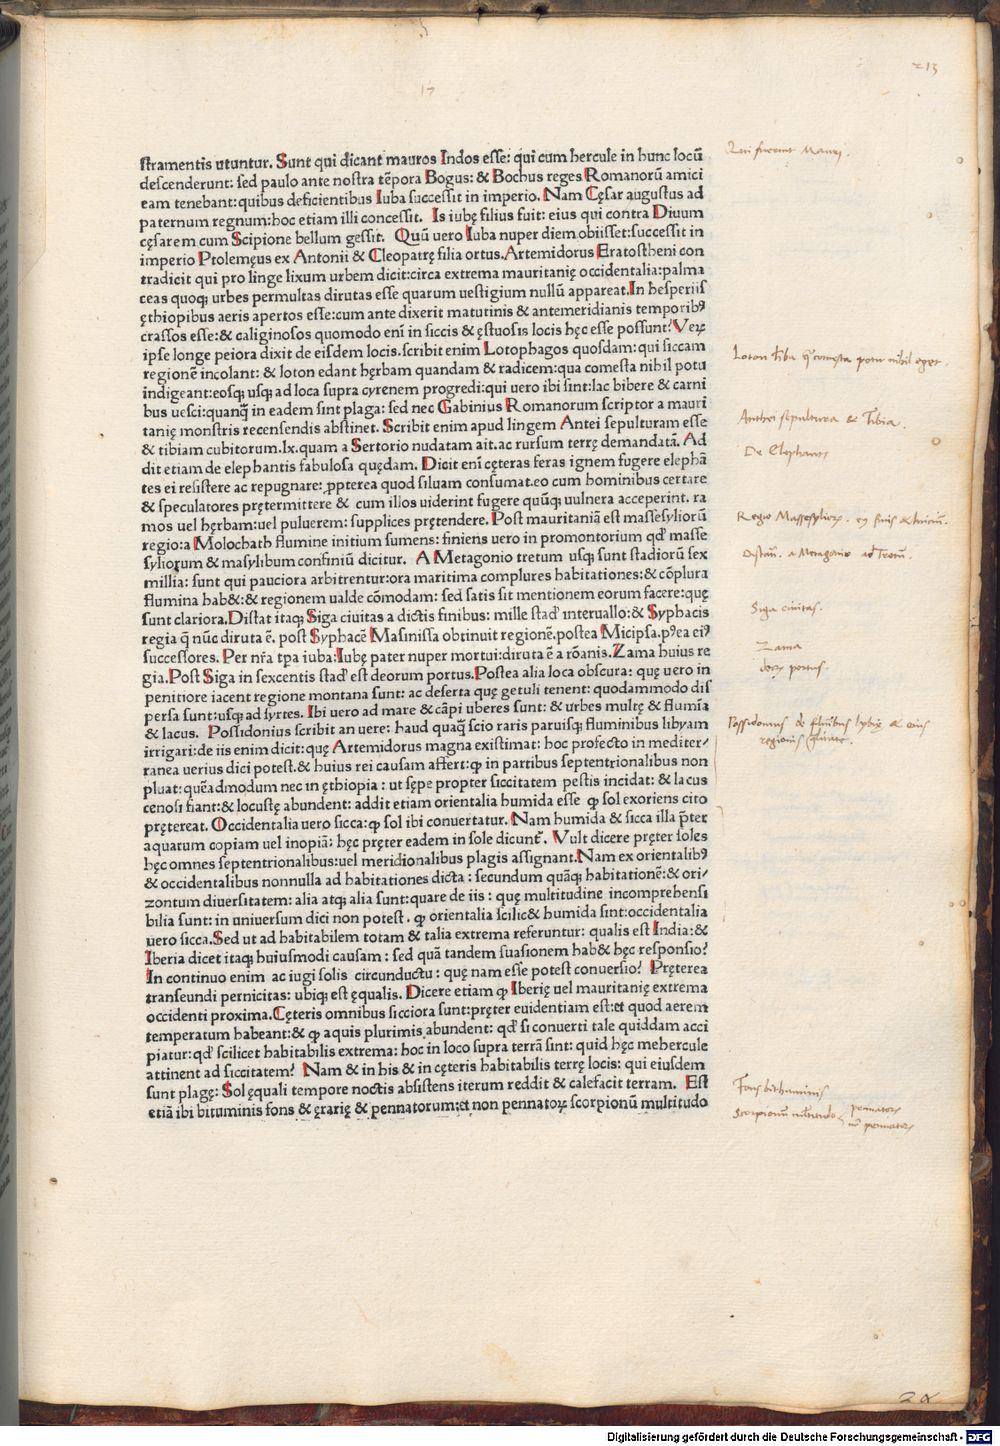 213
17
stramentis utuntur. Sunt qui dicant mauros Indos esse: qui cum hercule in hunc locū
descenderunt: sed paulo ante nostra tēpora Bogus: & Bochus reges Romanorū amici
eam tenebant: quibus deficientibus Iuba successit in imperio. Nam Cęsar augustus ad
paternum regnum: hoc etiam illi concessit. Is iubę filius fuit: eius qui contra Diuum
cęsarem cum Scipione bellum gessit. Quū uero Iuba nuper diem obiisset: successit in
imperio Ptolemęus ex Antonii & Cleopatrę filia ortus. Artemidorus Eratostheni con
tradicit qui pro linge lixum urbem dicit: circa extrema mauritanię occidentalia: palma
ceas quoqȝ urbes permultas dirutas esse quarum uestigium nullū appareat. In hesperiis
ęthiopibus aeris apertos esse: cum ante dixerit matutinis & antemeridianis temporibꝰ
crassos esse: & caliginosos quomodo eni in siccis & ęstuosis locis hęc esse possunt? Veꝝ
ipse longe peiora dixit de eisdem locis. scribit enim Lotophagos quosdam: qui siccam
regionē incolant: & loton edant hęrbam quandam & radicem: qua comesta nihil potu
indigeant: eosqȝ usqȝ ad loca supra cyrenem progredi: qui uero ibi sint: lac bibere & carni
bus uesci: quanqȝ in eadem sint plaga: sed nec Gabinius Romanorum scriptor a mauri
tanię monstris recensendis abstinet. Scribit enim apud lingem Antei sepulturam esse
& tibiam cubitorum. lx. quam a Sertorio nudatam ait. ac rursum terrę demandatā. Ad
dit etiam de elephantis fabulosa quędam. Dicit enī cęteras feras ignem fugere elephā
tes ei resistere ac repugnare: ꝓpterea quod siluam consumat. eo cum hominibus certare
& speculatores prętermittere & cum illos uiderint fugere quūqȝ uulnera acceperint. ra
mos uel hęrbam: uel puluerem: supplices prętendere. Post mauritaniā est massesyliorū
regio: a Molochath flumine initium sumens: finiens uero in promontorium qđ masse
syliorum & masylibum confiniū dicitur. A Metagonio tretum usqȝ sunt stadiorū sex
millia: sunt qui pauciora arbitrentur: ora maritima complures habitationes: & cōplura
flumina hab&: & regionem ualde cōmodam: sed satis sit mentionem eorum facere: quę
sunt clariora. Distat itaqȝ Siga ciuitas a dictis finibus: mille stađ interuallo: & Syphacis
regia q̄ nūc diruta ē. post Syphacē Masinissa obtinuit regionē. postea Micipsa. pꝰea eiꝰ
successores. Per nr̄a tpa iuba: Iubę pater nuper mortui: diruta ē a rōanis. Zama huius re
gia. Post Siga in sexcentis stađ est deorum portus. Postea alia loca obscura: quę uero in
penitiore iacent regione montana sunt: ac deserta quę getuli tenent: quodammodo dis
persa sunt: usqȝ ad syrtes. Ibi uero ad mare & cāpi uberes sunt: & urbes multę & flumīa
& lacus. Possidonius scribit an uere: haud quaqȝ scio raris paruisqȝ fluminibus libyam
irrigari: de iis enim dicit: quę Artemidorus magna existimat: hoc profecto in mediter-
ranea uerius dici potest. & huius rei causam affert: ꝙ in partibus septentrionalibus non
pluat: quēadmodum nec in ęthiopia: ut sępe propter siccitatem pestis incidat: & lacus
cenosi fiant: & locustę abundent: addit etiam orientalia humida esse ꝙ sol exoriens cito
prętereat. Occidentalia uero sicca: ꝙ sol ibi conuertatur. Nam humida & sicca illa p̄ter
aquarum copiam uel inopiā: hęc pręter eadem in sole dicunt᷑. Vult dicere pręter soles
hęc omnes septentrionalibus: uel meridionalibus plagis assignant. Nam ex orientalibꝰ
& occidentalibus nonnulla ad habitationes dicta: secundum quāqȝ habitationē: & ori-
zontum diuersitatem: alia atqȝ alia sunt: quare de iis: quę multitudine incomprehensi
bilia sunt: in uniuersum dici non potest. ꝙ orientalia scilic& humida sint: occidentalia
uero sicca. Sed ut ad habitabilem totam & talia extrema referuntur: qualis est India: &
Iberia dicet itaqȝ huiusmodi causam: sed quā tandem suasionem hab& hęc responsio?
In continuo enim ac iugi solis circunductu: quę nam esse potest conuersio? Pręterea
transeundi pernicitas: ubiqȝ est ęqualis. Dicere etiam ꝙ Iberię uel mauritanię extrema
occidenti proxima. Cęteris omnibus sicciora sunt: pręter euidentiam est: et quod aerem
temperatum habeant: & ꝙ aquis plurimis abundent: qđ si conuerti tale quiddam acci
piatur: qđ scilicet habitabilis extrema: hoc in loco supra terrā sint: quid hęc mehercule
attinent ad siccitatem? Nam & in his & in cęteris habitabilis terrę locis: qui eiusdem
sunt plagę: Sol ęquali tempore noctis absistens iterum reddit & calefacit terram. Est
etiā ibi bituminis fons & ęrarię & pennatorum: et non pennatoꝝ scorpionū multitudo
Qui fuerint Mauri.
Loton hr̄ba q̄ comesta potu nihil eget.
Anthei sepultura & Tibia.
De Elephantis
Regio Massesylioꝝ. eꝰ finis & initiū.
Distan. a Metagonio ad Tretū.
Siga ciuitas.
Zama
deoꝝ portus.
Possidonius de flūibus lybię & eius
regionis
Fons bithuminis
Scorpionū multitudo pennatoꝝ
nō pennatoꝝ
Digitalisierung gefördert durch die Deutsche Forschungsgemeinschaft - DFG